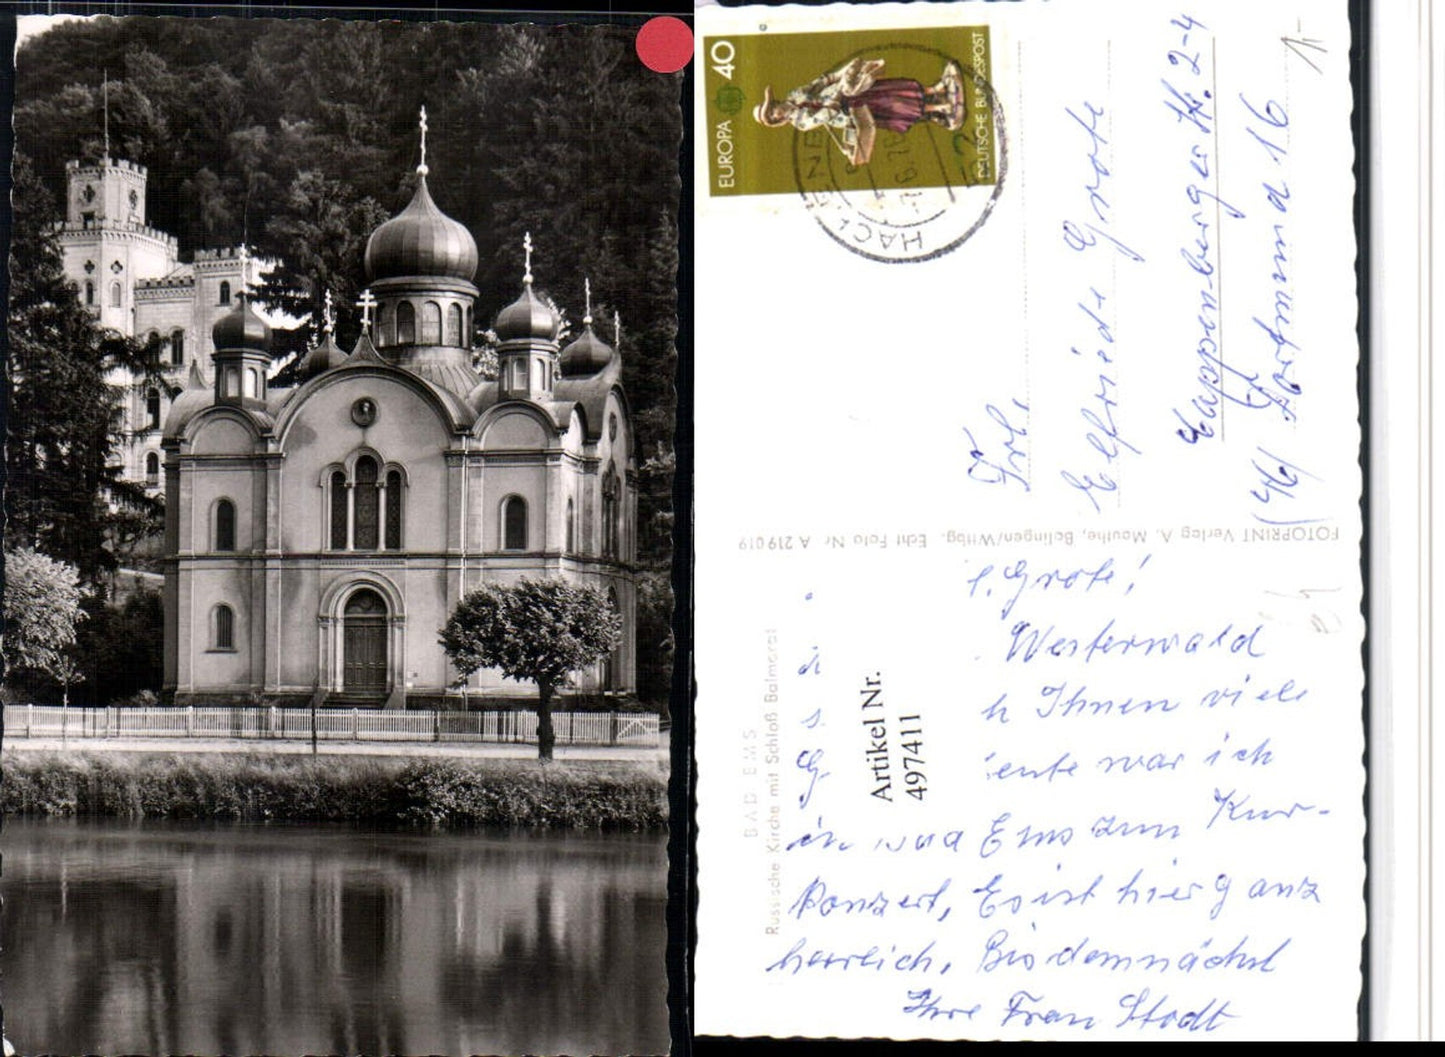 EUROPA 40
DEUTSCHE BUNDESPOST
HACHENB
Frl.
Elfriede Grote
Cappenberger Str. 2-4
(46) Dortmund 16
1,-
FOTOPRINT Verlag A. Mauthe, Balingen/Wttbg. Echt Foto Nr. A 219 019
BAD EMS
Russische Kirche mit Schloß Balmoral
Artikel Nr.
497411
l. Grote!
Westerwald
h Ihnen viele
G eute war ich
in Bad Ems zum Kur-
konzert, Es ist hier ganz
herrlich. Bis demnächst
Ihre Frau Stadt